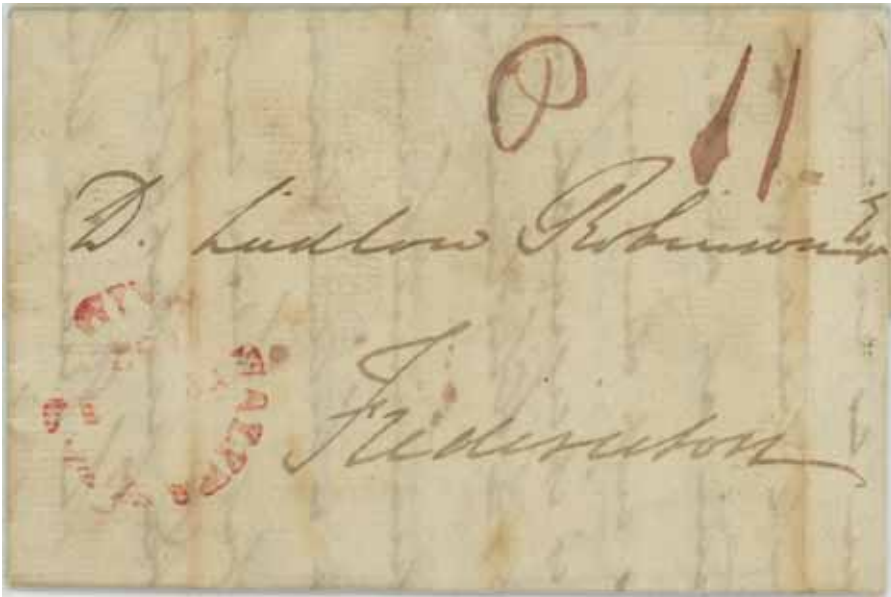 P 11
D. Ludlow Robinson Esqr
Fredericton